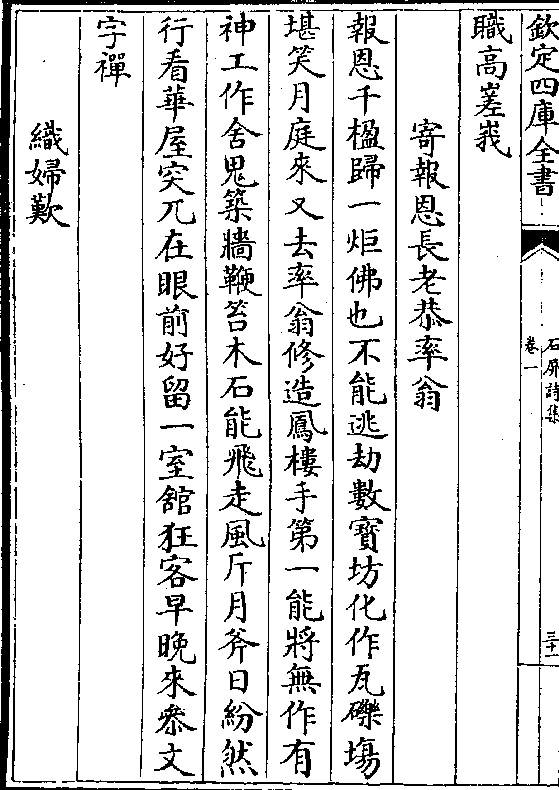 欽定四庫全書
石屏詩集
卷一
三十一
職高嵳峩
寄報恩長老恭率翁
報恩千楹歸一炬佛也不能逃劫數寳坊化作瓦礫塲
堪笑月庭來又去率翁修造鳳樓手第一能將無作有
神工作舍鬼築牆鞭笞木石能飛走風斤月斧日紛然
行看華屋突兀在眼前好留一室舘狂客早晚來叅文
字禪
織婦歎